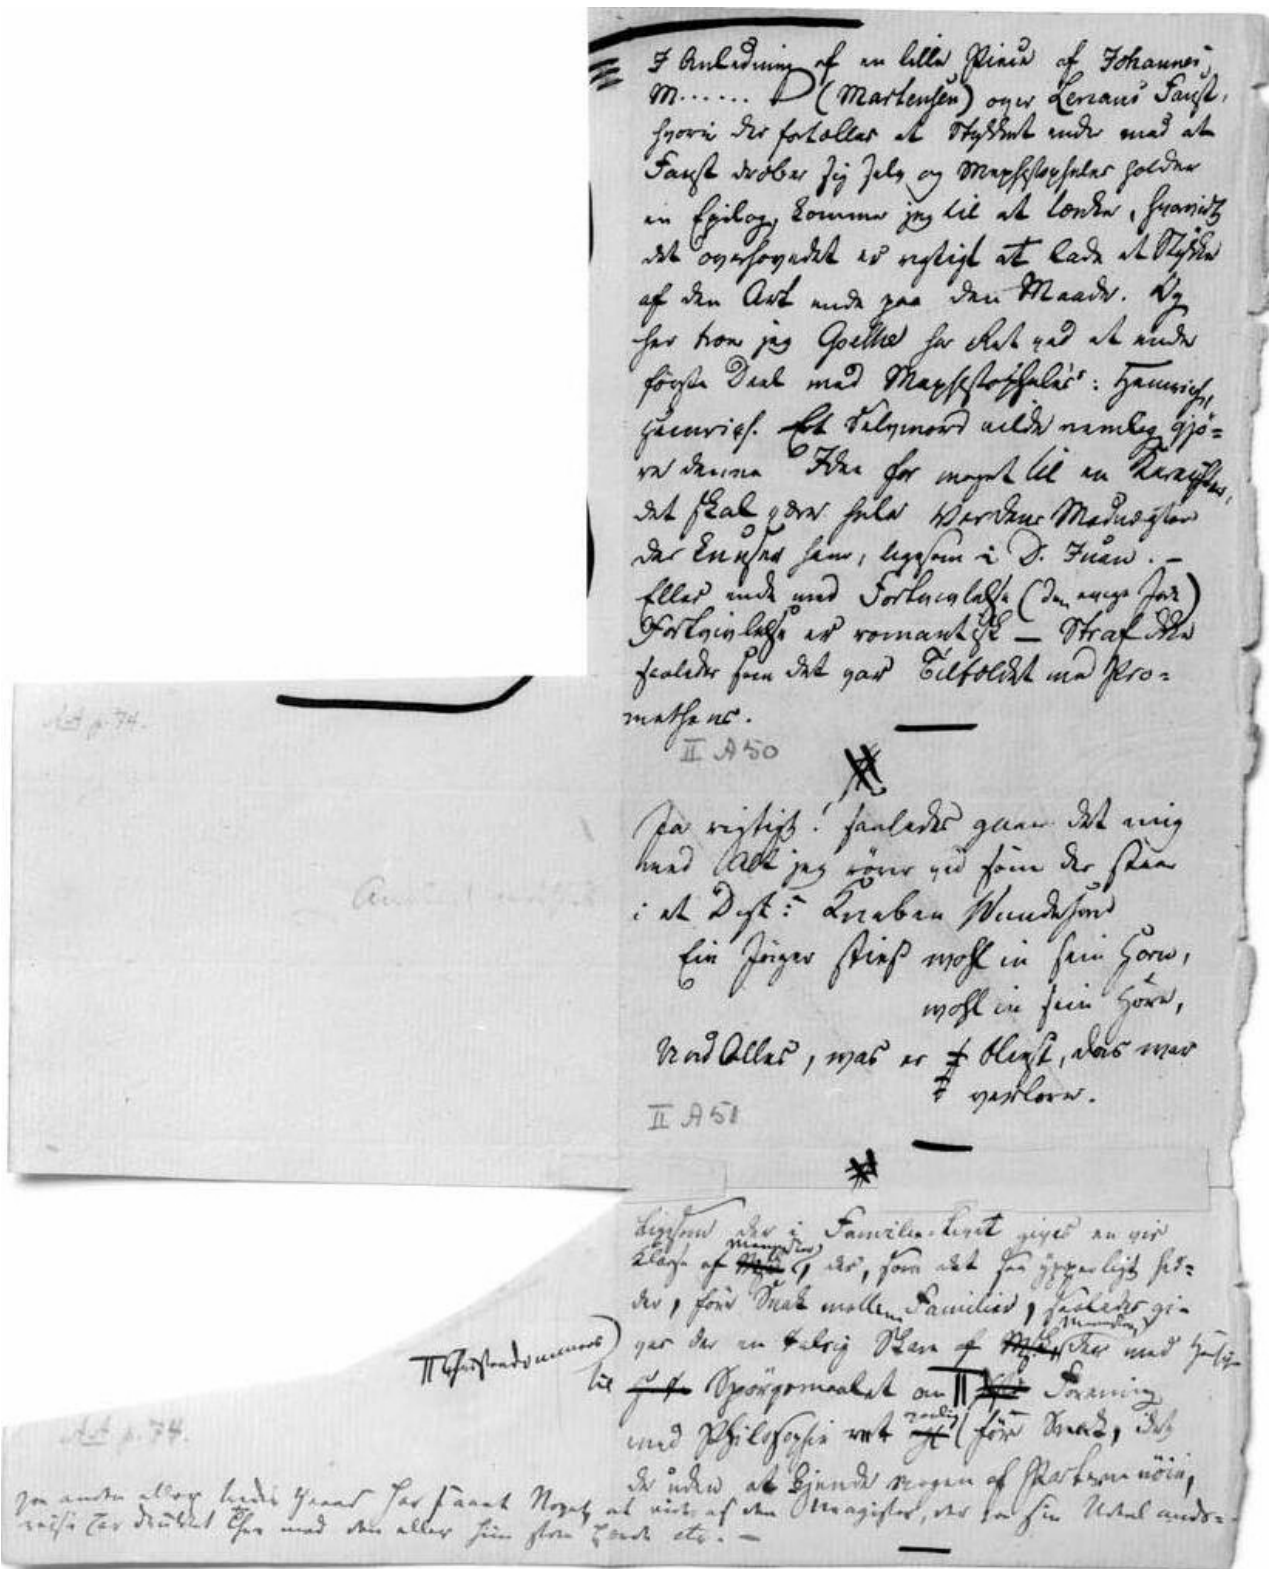 I Anledning af en lille Piece af Johannes
M...... (Martensen) over Lenaus Faust,
hvori der fortælles at Stykket ender med at
Faust dræber sig selv og Mephistopheles holder
en Epilog, kommer jeg til at tænke, hvorvidt
det overhovedet er rigtigt at lade et Stykke
af den Art ende paa den Maade. Og
her troer jeg Goethe har Ret ved at ende
første Deel med Mephistopheles's: Heinrich,
Heinrich. Et Selvmord vilde nemlig gjø=
re denne Idee for meget til en Karakter,
det skal være hele Verdens Modvægt
der knuser ham, ligesom i D. Juan. —
Eller ende med Fortvivlelse (den evige Jøde)
Fortvivlelse er romantisk — Straf ikke
saaledes som det var Tilfældet med Pro=
metheus.
II A 50
Ja rigtigt! saaledes gaaer det mig
med Alt jeg rører ved som der staaer
i et Digt: Knaben Wunderhorn
Ein Jäger stieß wohl in sein Horn,
wohl in sein Horn,
Und Alles, was er blies, das war
verlorn.
II A 51
Ligesom der i Familie-Livet gives en vis
Klasse af Mennesker, der, som det saa ypperligt hed=
der, føre Snak mellem Familier, saaledes gi=
ves der en talrig Skare af Mennesker, der med Hensyn
til Spørgsmaalet om Forening
Christendommens
med Philosophie ret føre Snak, idet
de uden at kjende nogen af Parterne nøie,
paa anden eller tredie Haand har faaet Noget at vide af den Magister, der paa sin Udenlands=
reise har drukket Thee med den eller hiin store Lærde etc. —
A.A. p. 74.
A.A. p. 74.